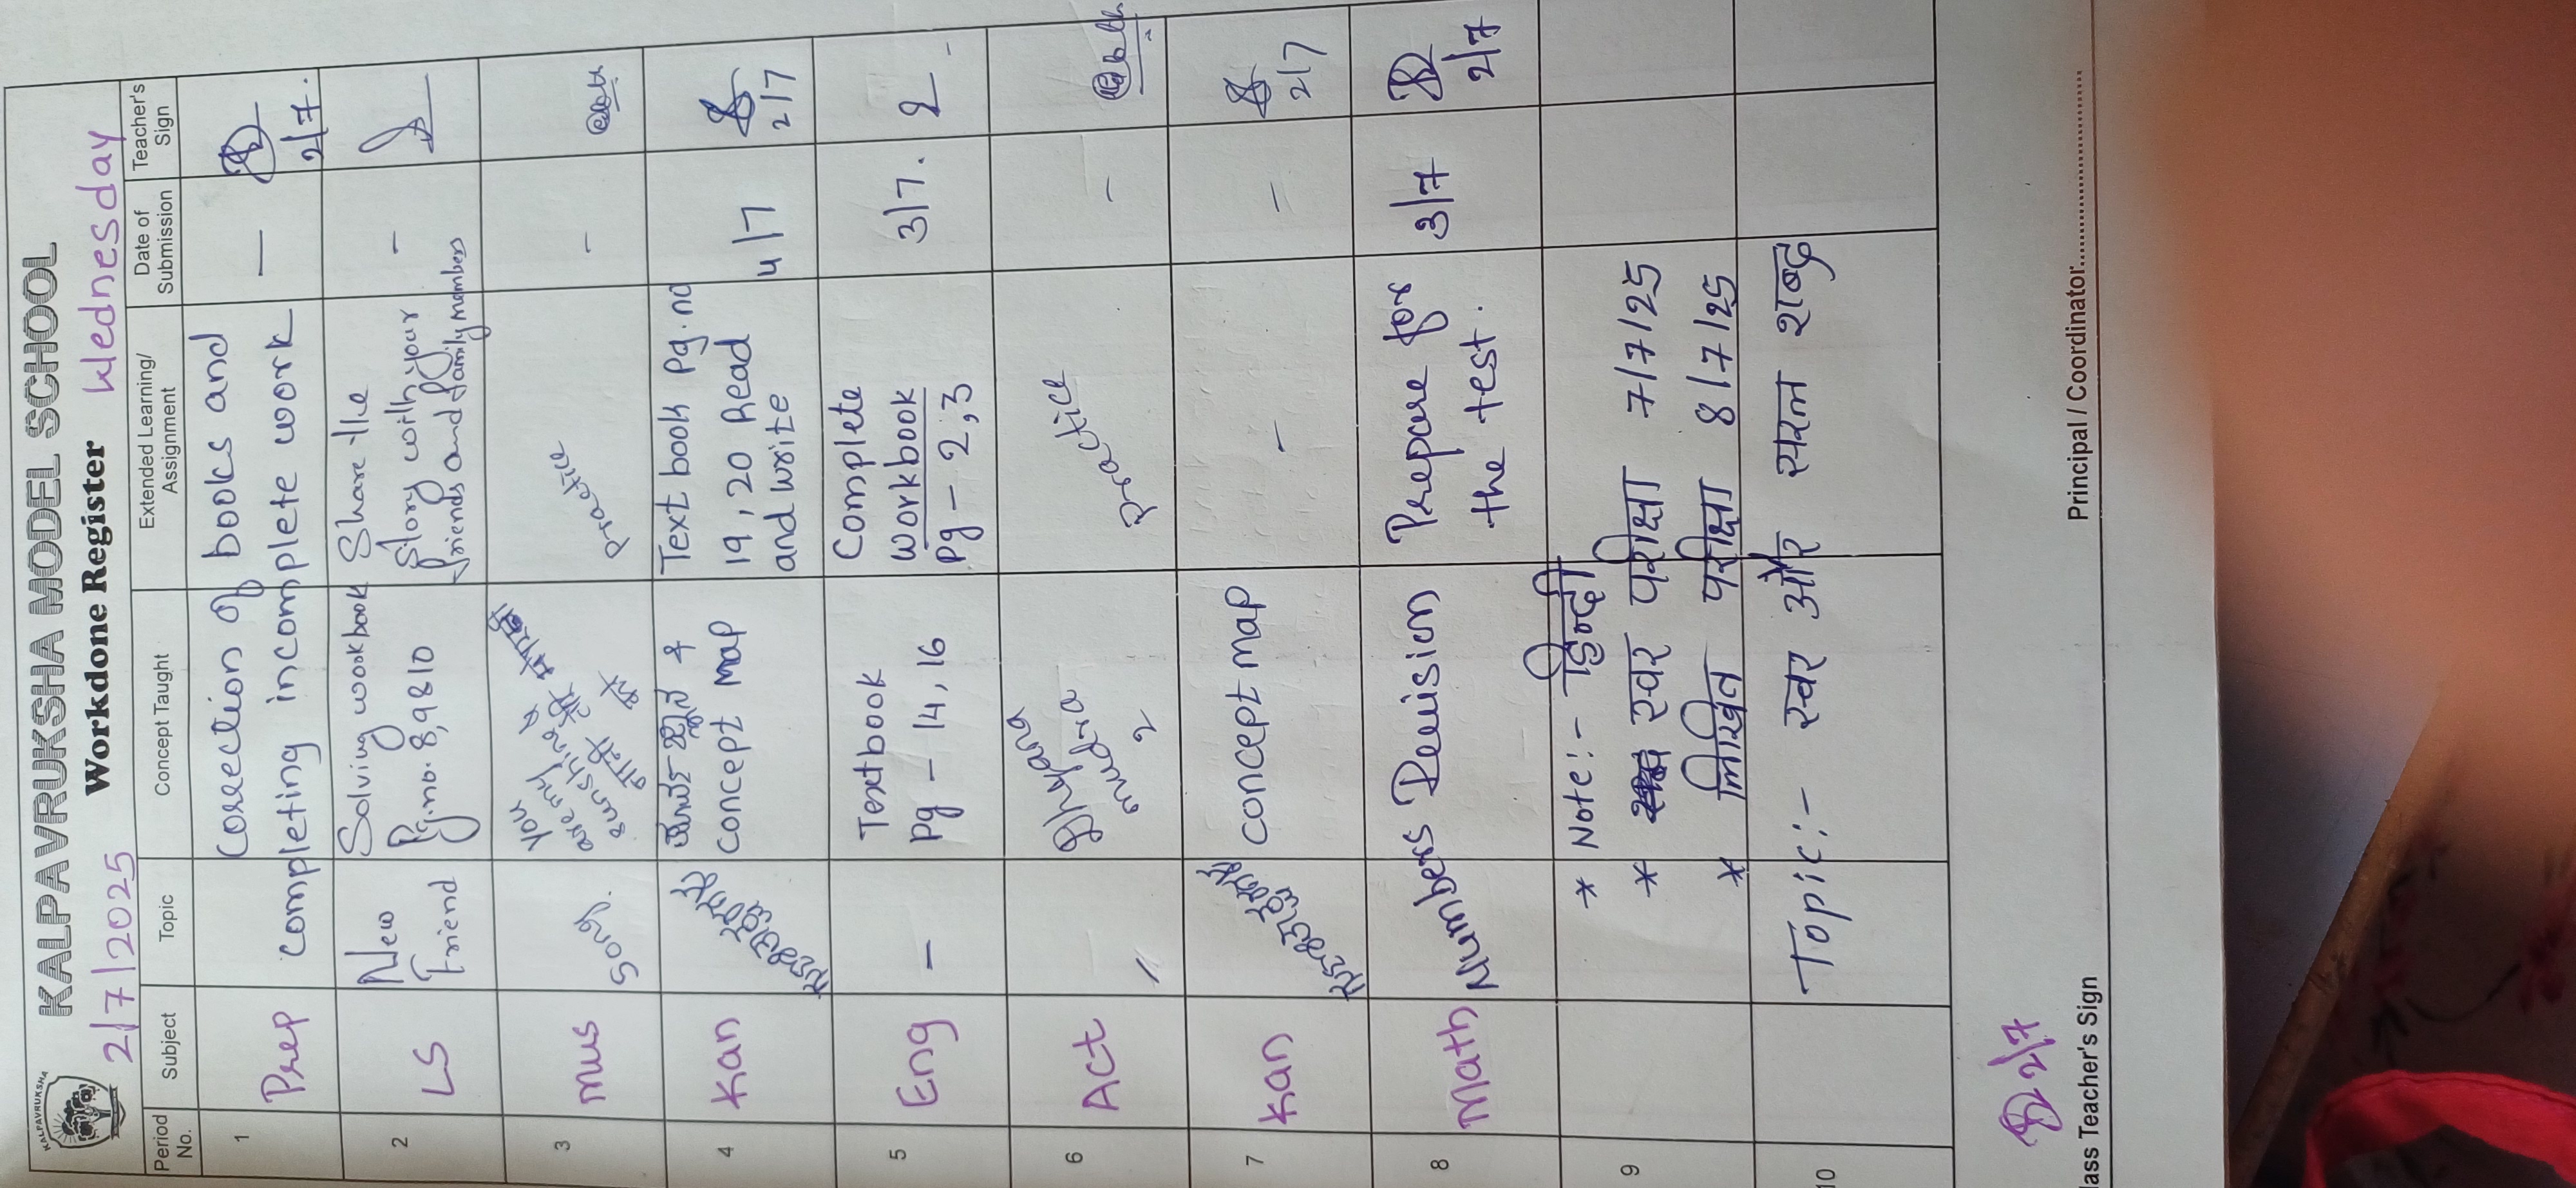 KALPAVRUKSHA
KALPAVRUKSHA MODEL SCHOOL
2/7/2025 Workdone Register Wednesday
Period No. Subject Topic Concept Taught Extended Learning/ Assignment Date of Submission Teacher's Sign
1 Prep Corection of books and
completing incomplete work — 2/7.
2 LS New Friend Solving wookbook
Pg.no. 8,9&10
Share the
Story with your
friends and family members -
3 Mus Song. You
are my
sunshine &
practice -
4 Kan concept map
Text book Pg.no
19, 20 Read
and write
4/7 2/7
5 Eng - Textbook
Pg - 14, 16
Complete
Workbook
Pg - 2, 3
3/7.
6 Act " Dhyana
mudra
2
practice -
7 Kan concept map - - 2/7
8 Math Numbers Revision Prepare for
the test. 3/7 2/7
9 * Note:- हिन्दी
* स्वर परीक्षा 7/7/25
* लिखित परीक्षा 8/7/25
10 Topic:- स्वर और सरल शब्द
2/7
lass Teacher's Sign Principal / Coordinator